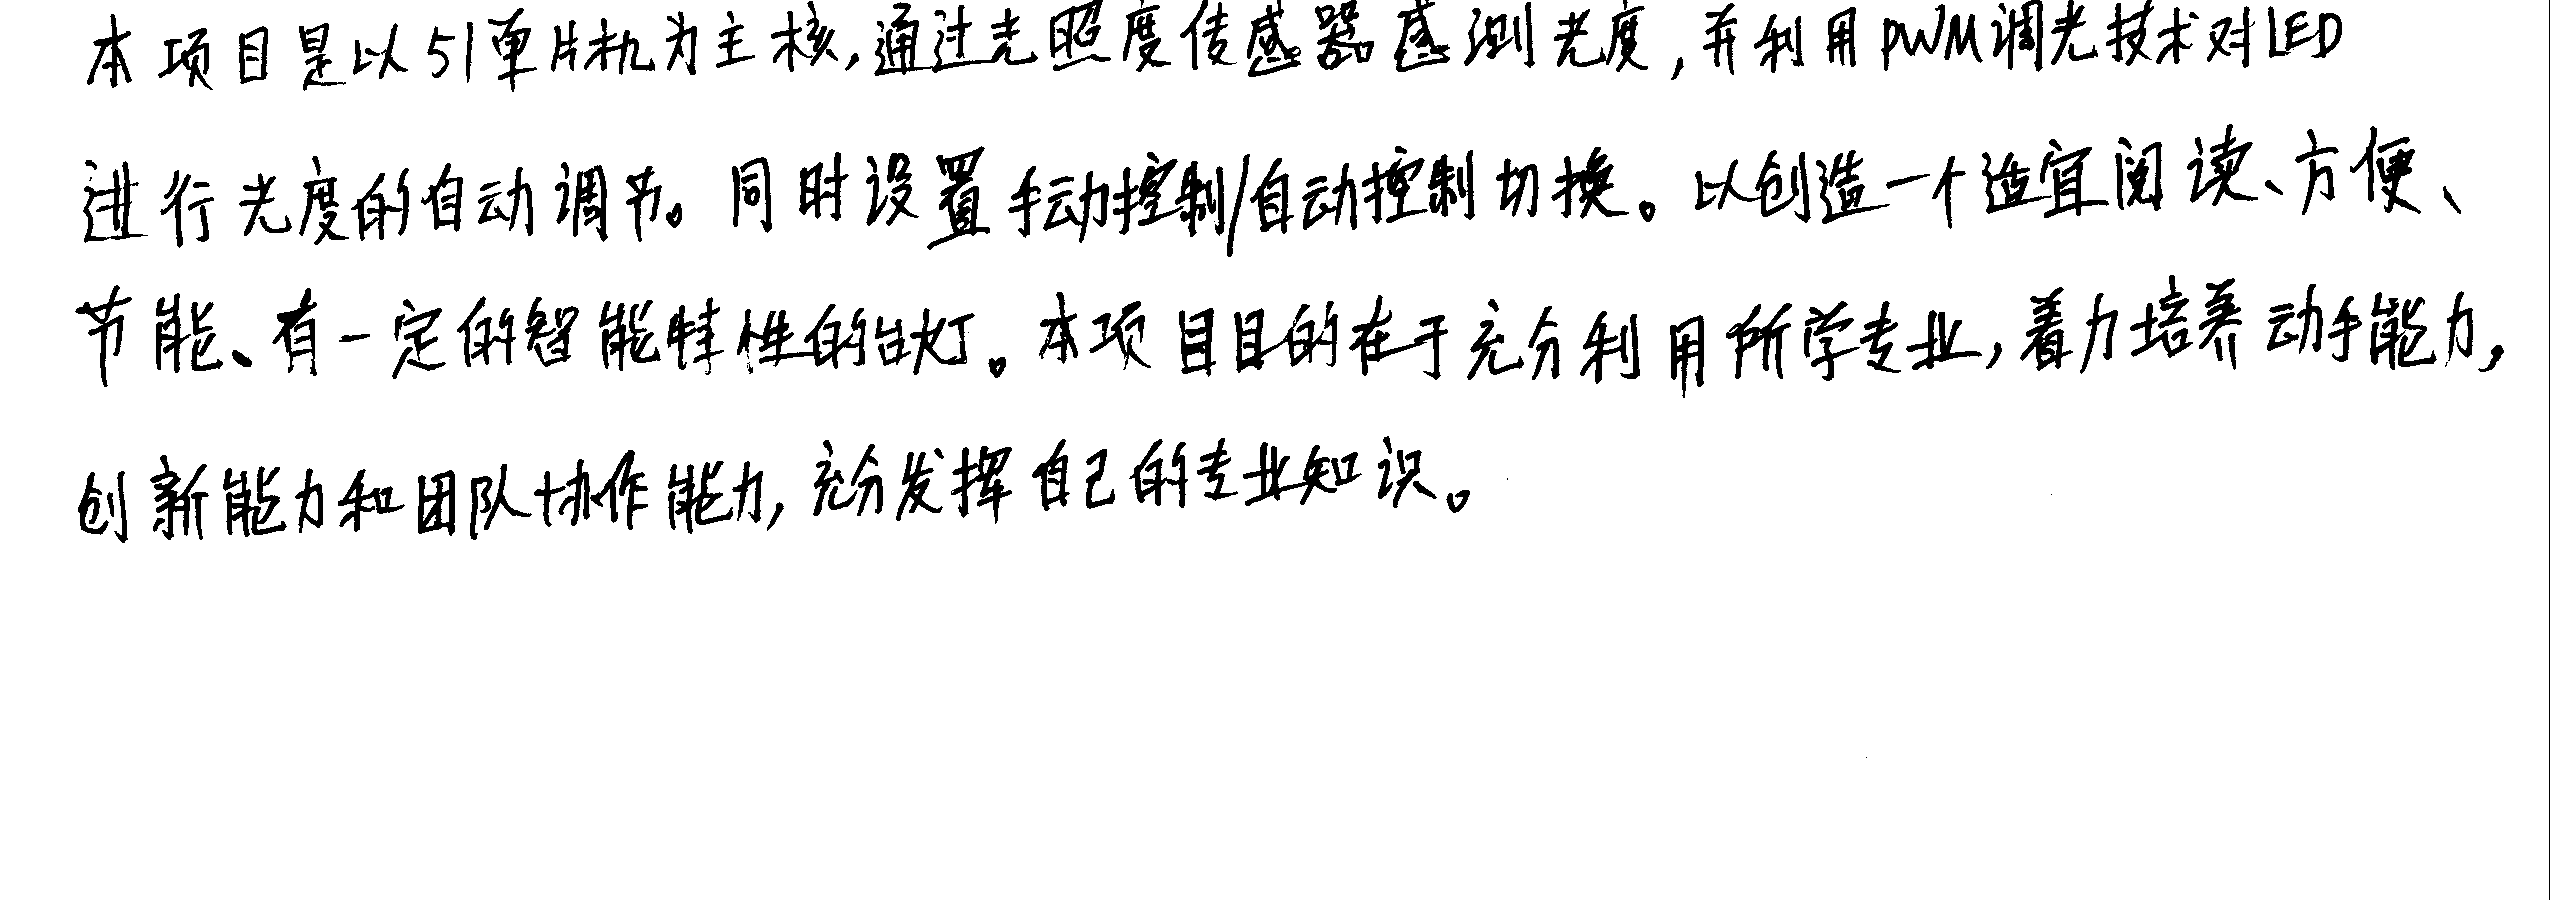 本项目是以51单片机为主核,通过光照度传感器感测光度,并利用PWM调光技术对LED
进行光度的自动调节。同时设置手动控制/自动控制切换。以创造一个适宜阅读、方便、
节能、有一定的智能特性的台灯。本项目目的在于充分利用所学专业,着力培养动手能力,
创新能力和团队协作能力,充分发挥自己的专业知识。